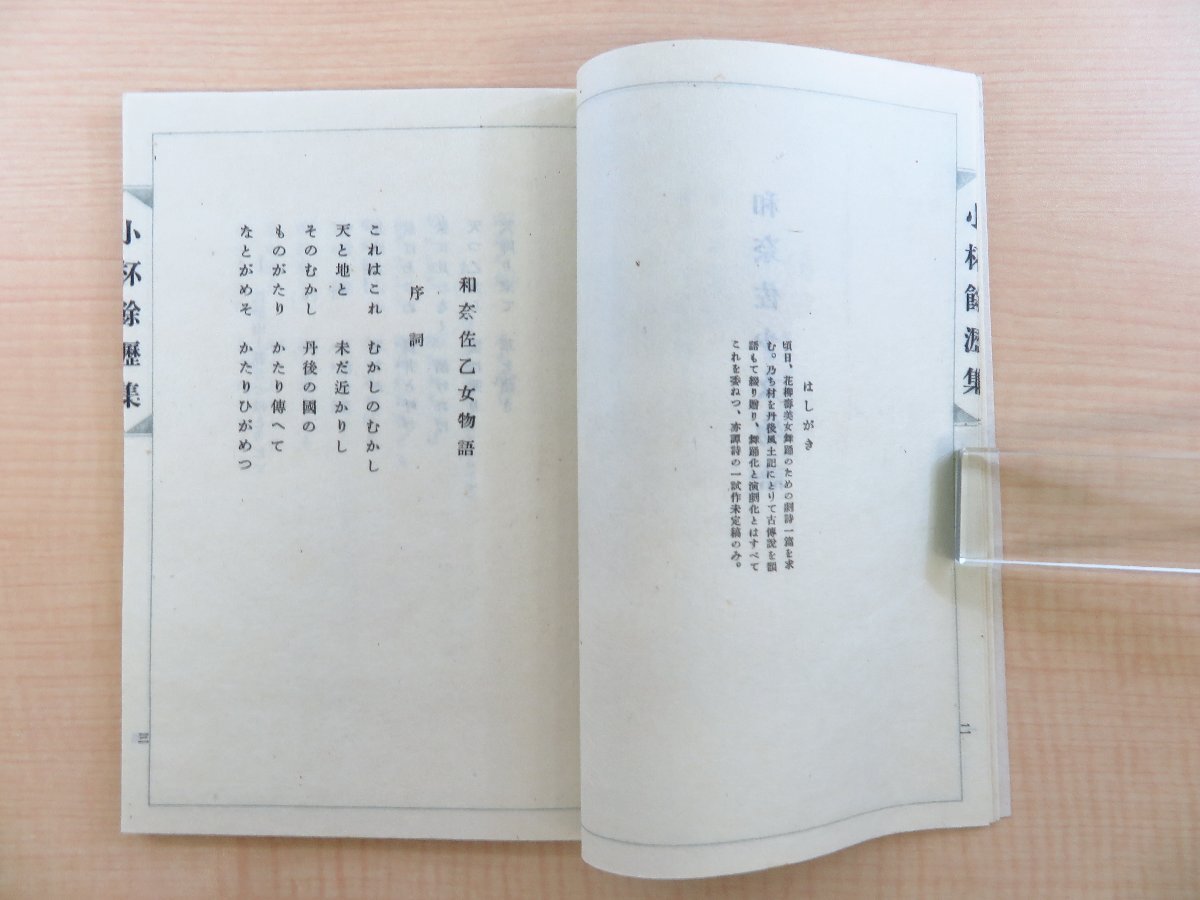 小杯餘瀝集
はしがき
頃日、花柳壽美女舞踊のための劇詩一篇を求
む。乃ち材を丹後風土記にとりて古傳説を韻
語もて綴り贈り、舞踊化と演劇化とはすべて
これを委ねつ、亦譚詩の一試作未定稿のみ。
二
和奈佐乙女物語
序詞
これはこれ　むかしのむかし
天と地と　未だ近かりし
そのむかし　丹後の國の
ものがたり　かたり傳へて
なとがめそ　かたりひがめつ
小杯餘瀝集